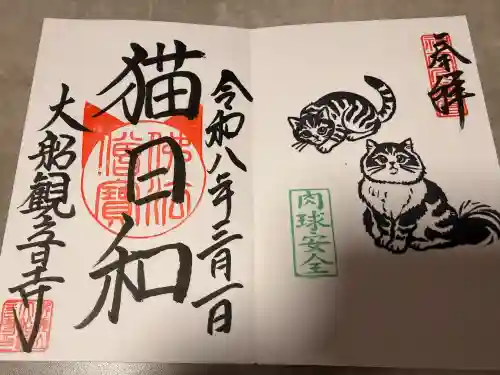 奉拝
肉球安全
令和八年三月一日
猫日和
佛法僧寶
大船観音寺